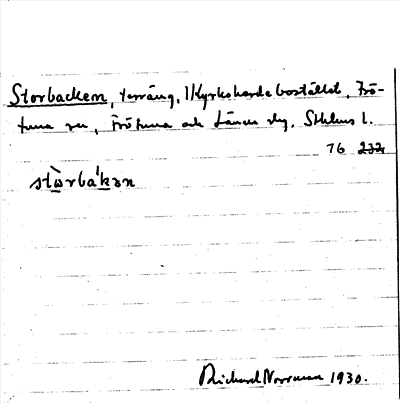 Storbacken, terräng, /Kyrkoherdebostället, Frö-
tuna sn, Frötuna och Länna slg, Sthlms l.
76 232
stòrbákən
Richard Norrman 1930.